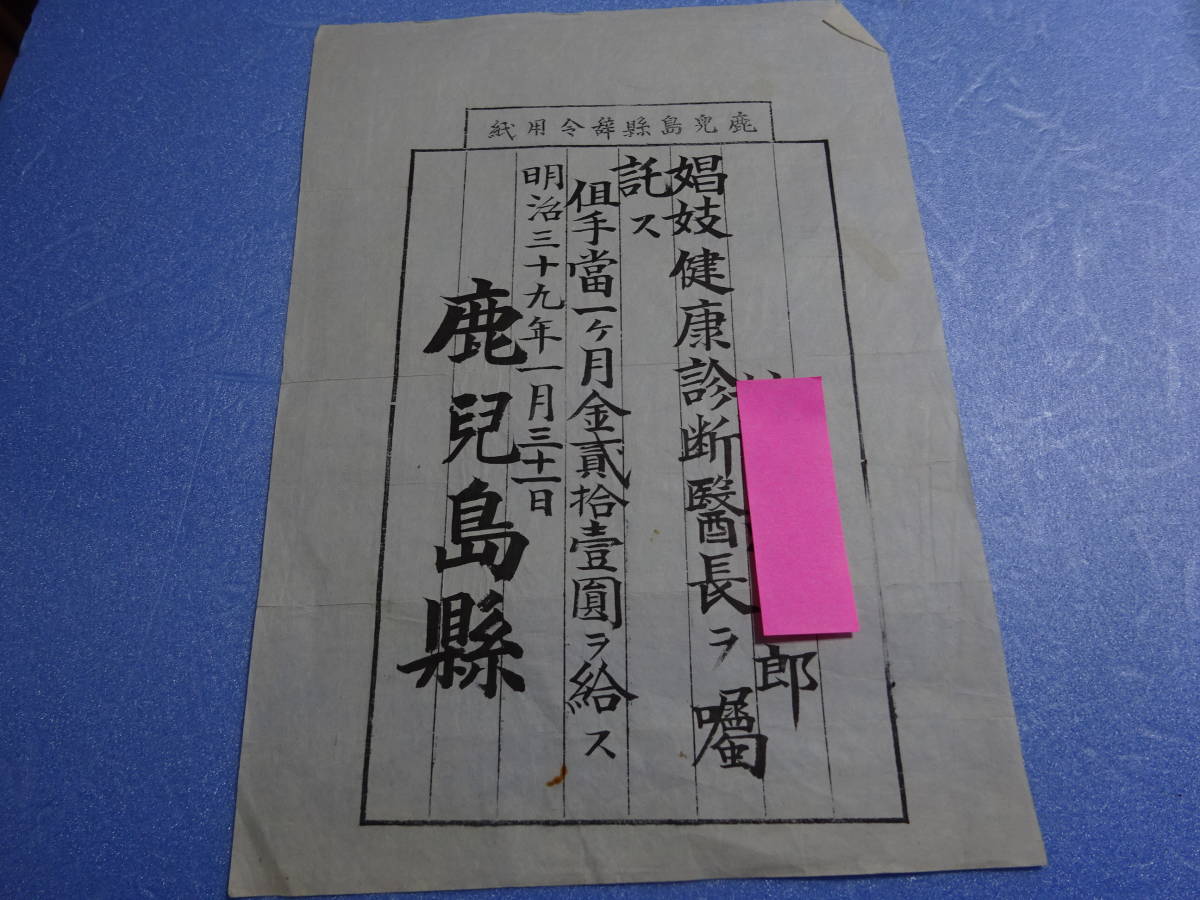 鹿兒島縣辭令用紙
郎
娼妓健康診断醫長ヲ囑
託ス
但手當一ケ月金貳拾壹圓ヲ給ス
明治三十九年一月三十一日
鹿兒島縣